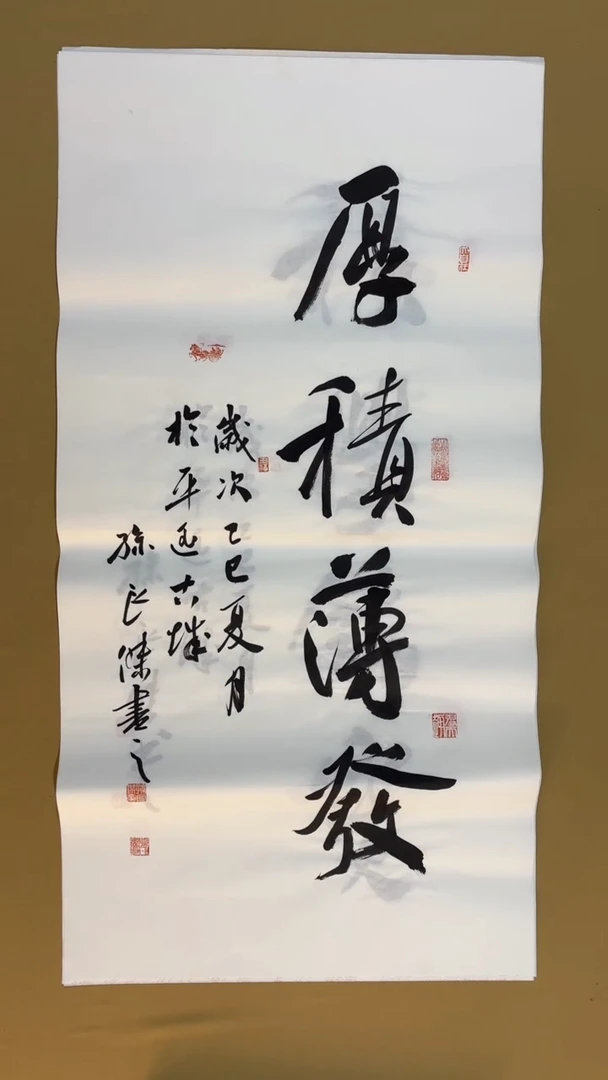 厚積薄發
歲次乙巳夏月
於平遥古城
孫良傑書之